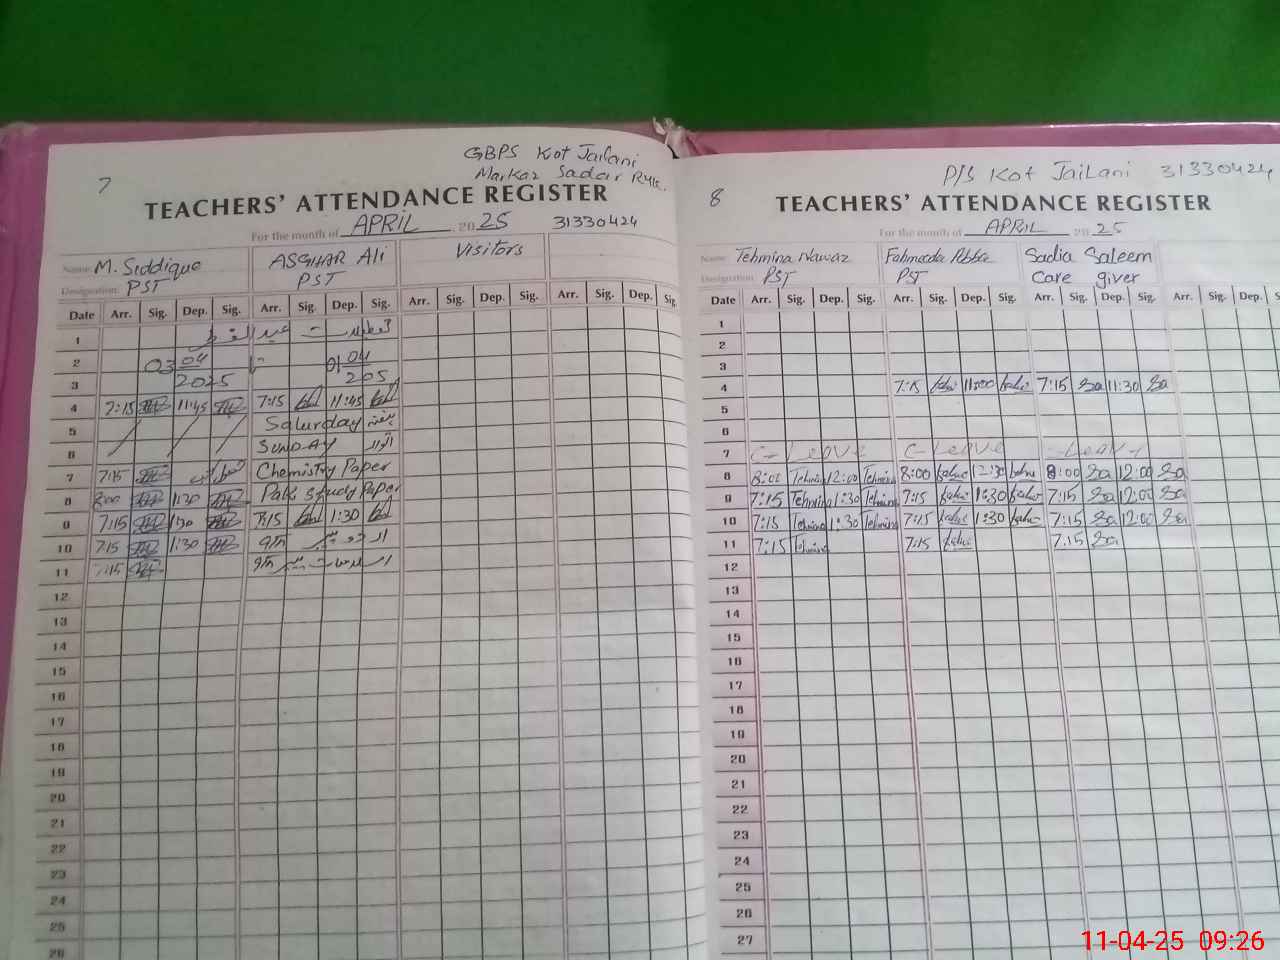 7
GBPS Kot Jailani
Markaz Sadar RYK.
TEACHERS' ATTENDANCE REGISTER
For the month of APRIL 2025 31330424
Name M. Siddique ASGHAR Ali Visitors
Designation PST PST
Date Arr. Sig. Dep. Sig. Arr. Sig. Dep. Sig. Arr. Sig. Dep. Sig. Arr. Sig. Dep. Sig.
1 تعطیلات عید الفطر
2 03 04 01 04
3 2025 205
4 7:15 11:45 7:15 11:45
5 Saturday ہفتہ
6 SUNDAY اتوار
7 7:15 Chemistry Paper
8 8:00 1:30 Pak: Study Paper
9 7:15 1:30 7:15 1:30
10 7:15 1:30 9th
11 7:15 9th
12
13
14
15
16
17
18
19
20
21
22
23
24
25
26
8
P/S Kot Jailani 31330424
TEACHERS' ATTENDANCE REGISTER
For the month of APRIL 2025
Name Tehmina Nawaz Fahmeeda Sadia Saleem
Designation PST PST Care giver
Date Arr. Sig. Dep. Sig. Arr. Sig. Dep. Sig. Arr. Sig. Dep. Sig. Arr. Sig. Dep.
1
2
3
4 7:15 11:00 7:15 Sa 11:30 Sa
5
6
7 C-Leave C-Leave Leave
8 8:00 Tehmina 12:00 Tehmina 8:00 12:30 8:00 Sa 12:00 Sa
9 7:15 Tehmina 1:30 Tehmina 7:15 1:30 7:15 Sa 12:00 Sa
10 7:15 Tehmina 1:30 Tehmina 7:15 1:30 7:15 Sa 12:00 Sa
11 7:15 Tehmina 7:15 7:15 Sa
12
13
14
15
16
17
18
19
20
21
22
23
24
25
26
27
11-04-25 09:26